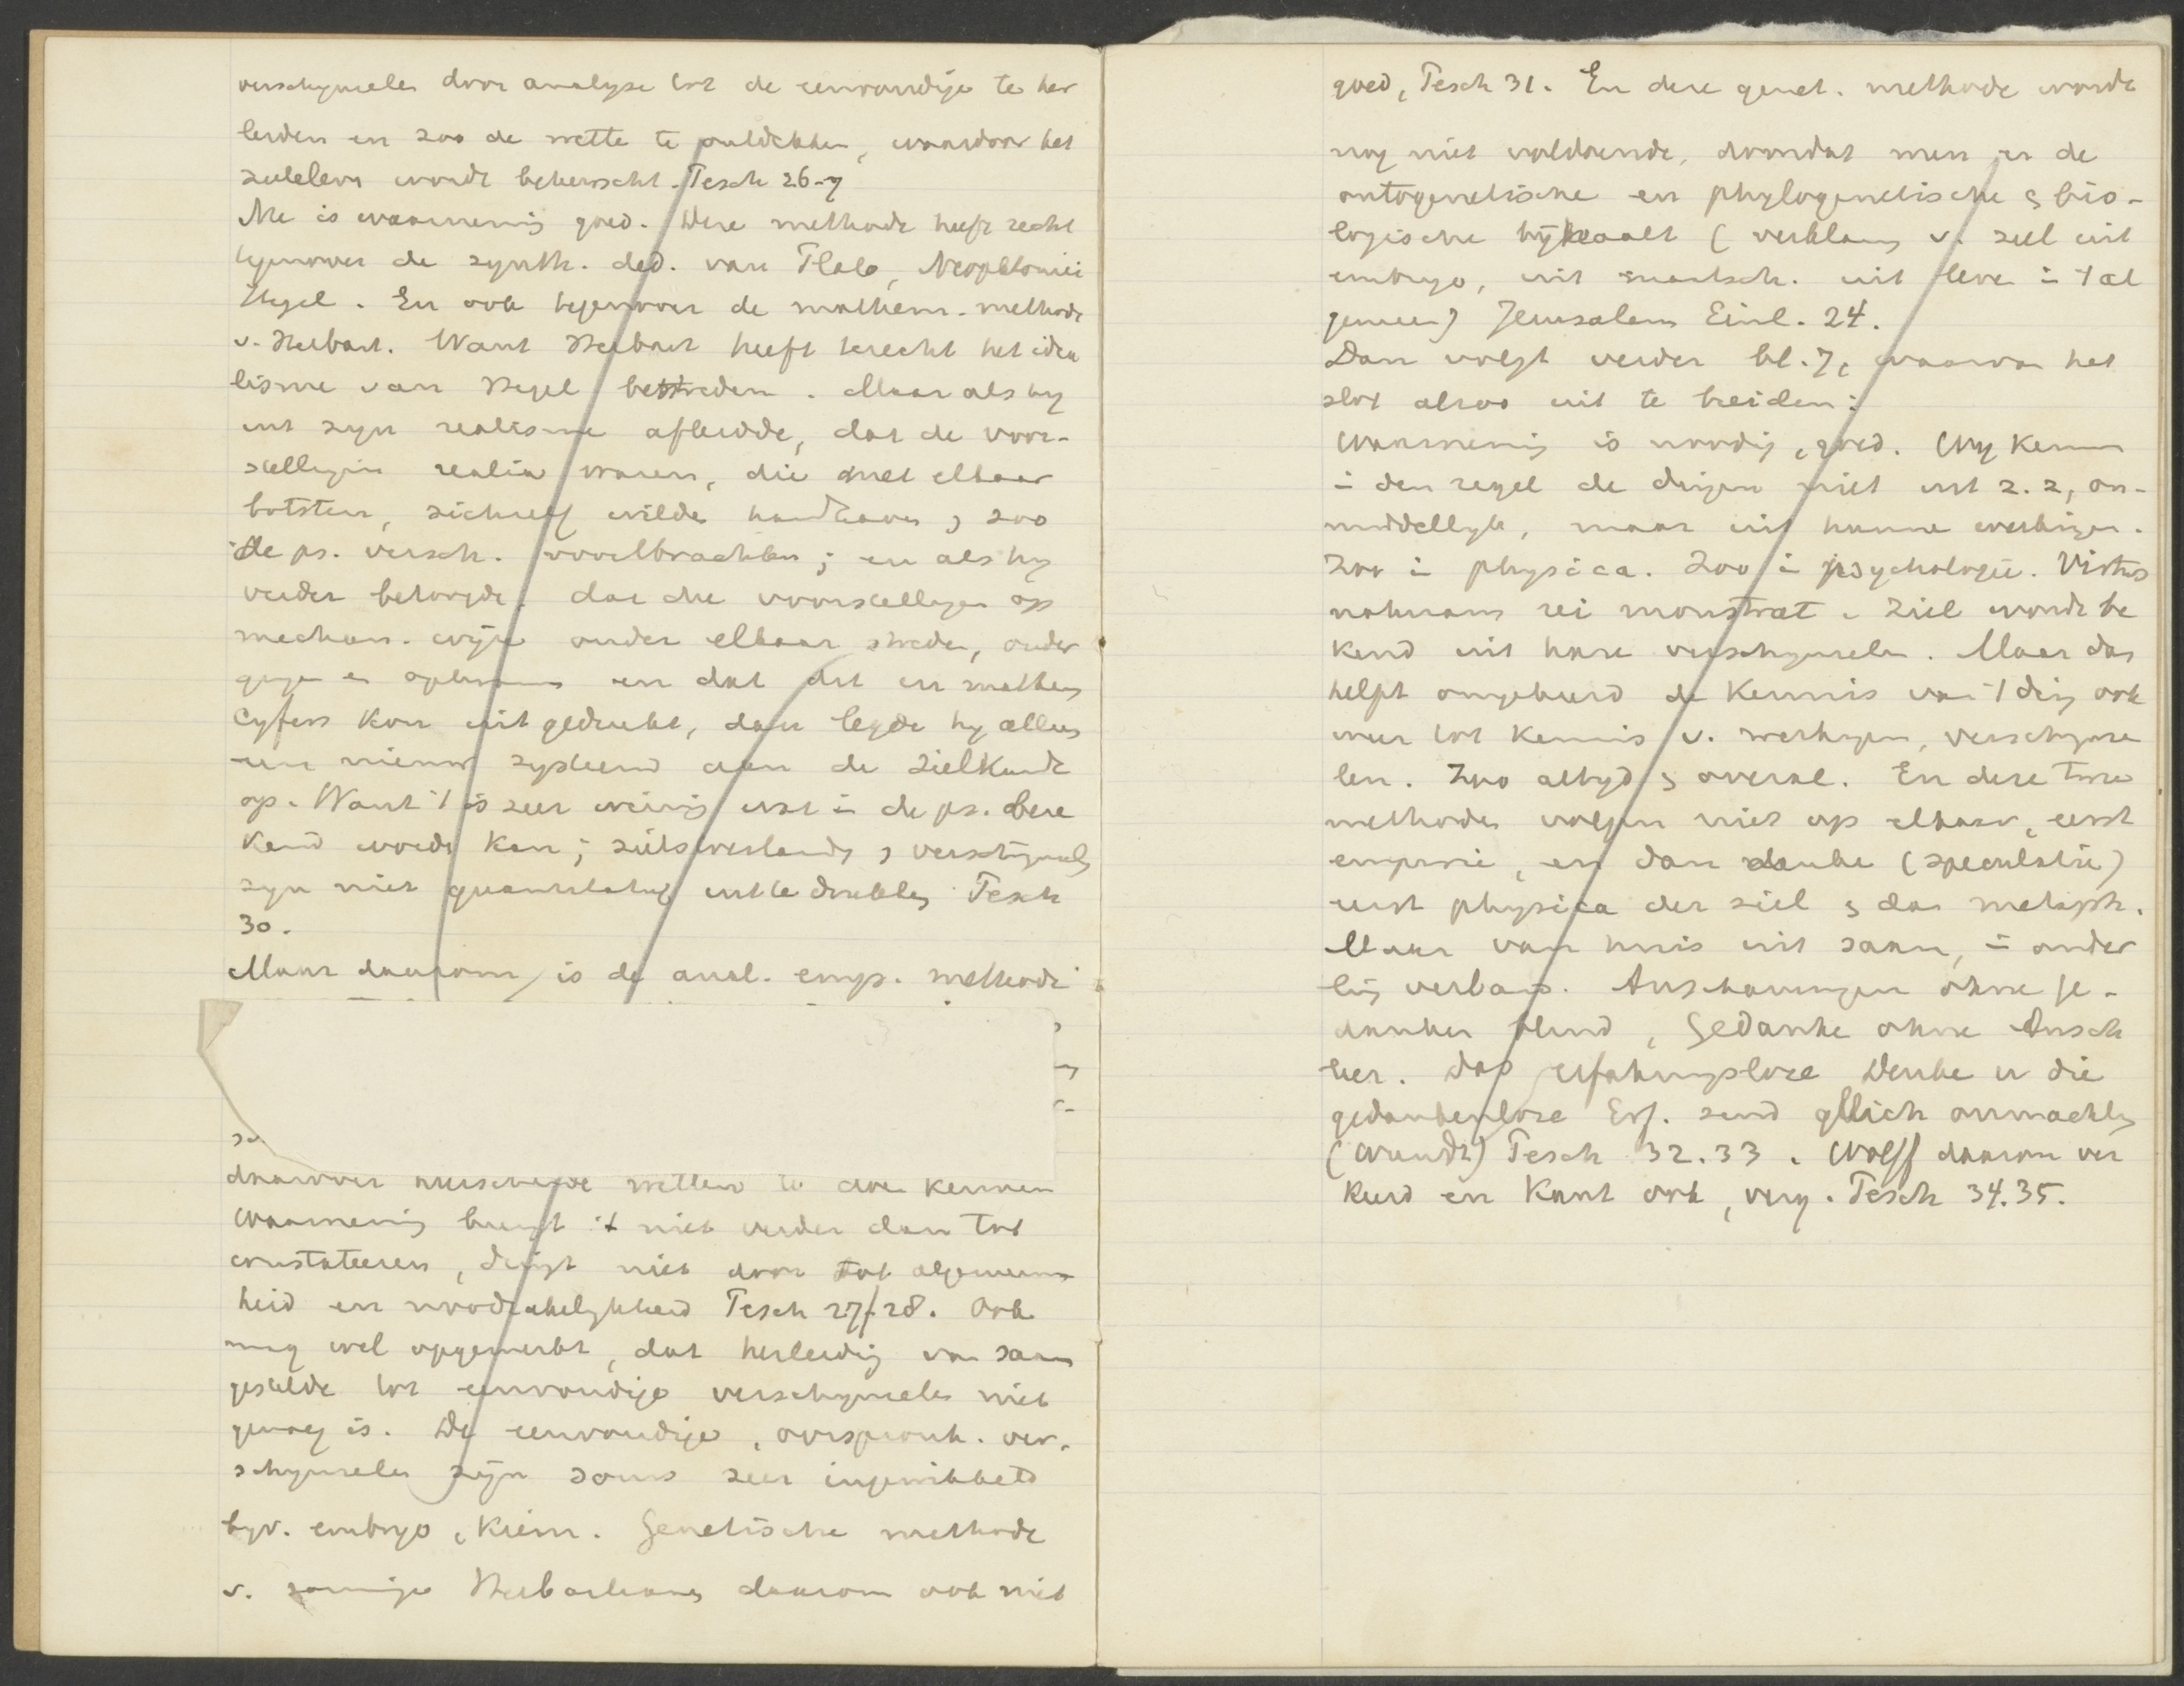 verschynselen door analyse tot de eenvoudige te her
leiden en zoo de wette te ontdekken, waardoor het
zieleleven wordt beheerscht. Tesch 26-7
Ne is waarnemig goed. Deze methode heeft recht
tegenover de synth. ded. van Plato, Neoplatonici
Hegel. En ook tegenover de mathem. methode
v. Herbart. Want Herbart heeft terecht het idea
lisme van Hegel bestreden. Maar als hy
uit zyn realisme afleidde, dat de voor-
stellingen realia waren, die met elkaar
botsten, zichzelf wilde handhaven & zoo
de ps. versch. voortbrachten; en als hy
verder betoogde, dat die voorstellingen op
mechan. wyze onder elkaar streden, onder
gingen en opkwamen en dat dit in mathem
cyfers kon uitgedrukt, dan legde hy alleen
een nieuw systeem aan de zielkunde
op. Want 't is zeer weinig wat in de ps. bere
kend worde kan; zielstoestande & verschynsels
zyn niet quantitatief uit te drukken Tesch
30.
Maar daarom is de anal. emp. methode
daarover heerschende wetten te doen kennen
Waarneming brengt 't niet verder dan tot
constateeren, dringt niet door tot algemeen
heid en noodzakelykheid Tesch 27-28. Ook
mag wel opgemerkt, dat herleidig van saam
gestelde tot eenvoudige verschynselen niet
genoeg is. De eenvoudige, oorspronk. ver-
schynselen zyn soms zeer ingewikkeld
byv. embryo, kiem. Genetische methode
v. sommige Herbartianen daarom ook niet
goed, Tesch 31. En deze genet. methode wordt
nog niet voldoende, doordat men er de
ontogenetische en phylogenetische & bio-
logische bijhaalt (verklaring v. ziel uit
embryo, uit maatsch. uit leve in 't al
gemeen) Jerusalem Einl. 24.
Dan volgt verder bl. 7, waarvan het
slot alzoo uit te breiden:
Waarneming is noodig, goed. Wy kennen
in den regel de dingen niet uit z. z, on-
middellyk, maar uit hunne werkingen.
Zoo in physica. Zoo in psychologie. Virtus
naturam rei monstrat. Ziel wordt be
kend uit hare verschynselen. Maar dan
helpt omgekeerd de kennis van 't ding ook
weer tot kennis v. werkingen, verschynse
len. Zoo altyd & overal. En deze twee
methoden volgen niet op elkaar, eerst
empirie, en dan denke (speculatie)
eerst physica der ziel & dan metaph.
Maar van huis uit saam, in onder
ling verband. Anschauungen ohne Ge-
danken blind, Gedanke ohne Ansch
leer. Das erfahrungslose Denke u die
gedankenlose Erf. sind gleich onmachtig
(Wundt) Tesch 32.33. Wolff daarom ver
keerd en Kant ook, verg. Tesch 34.35.